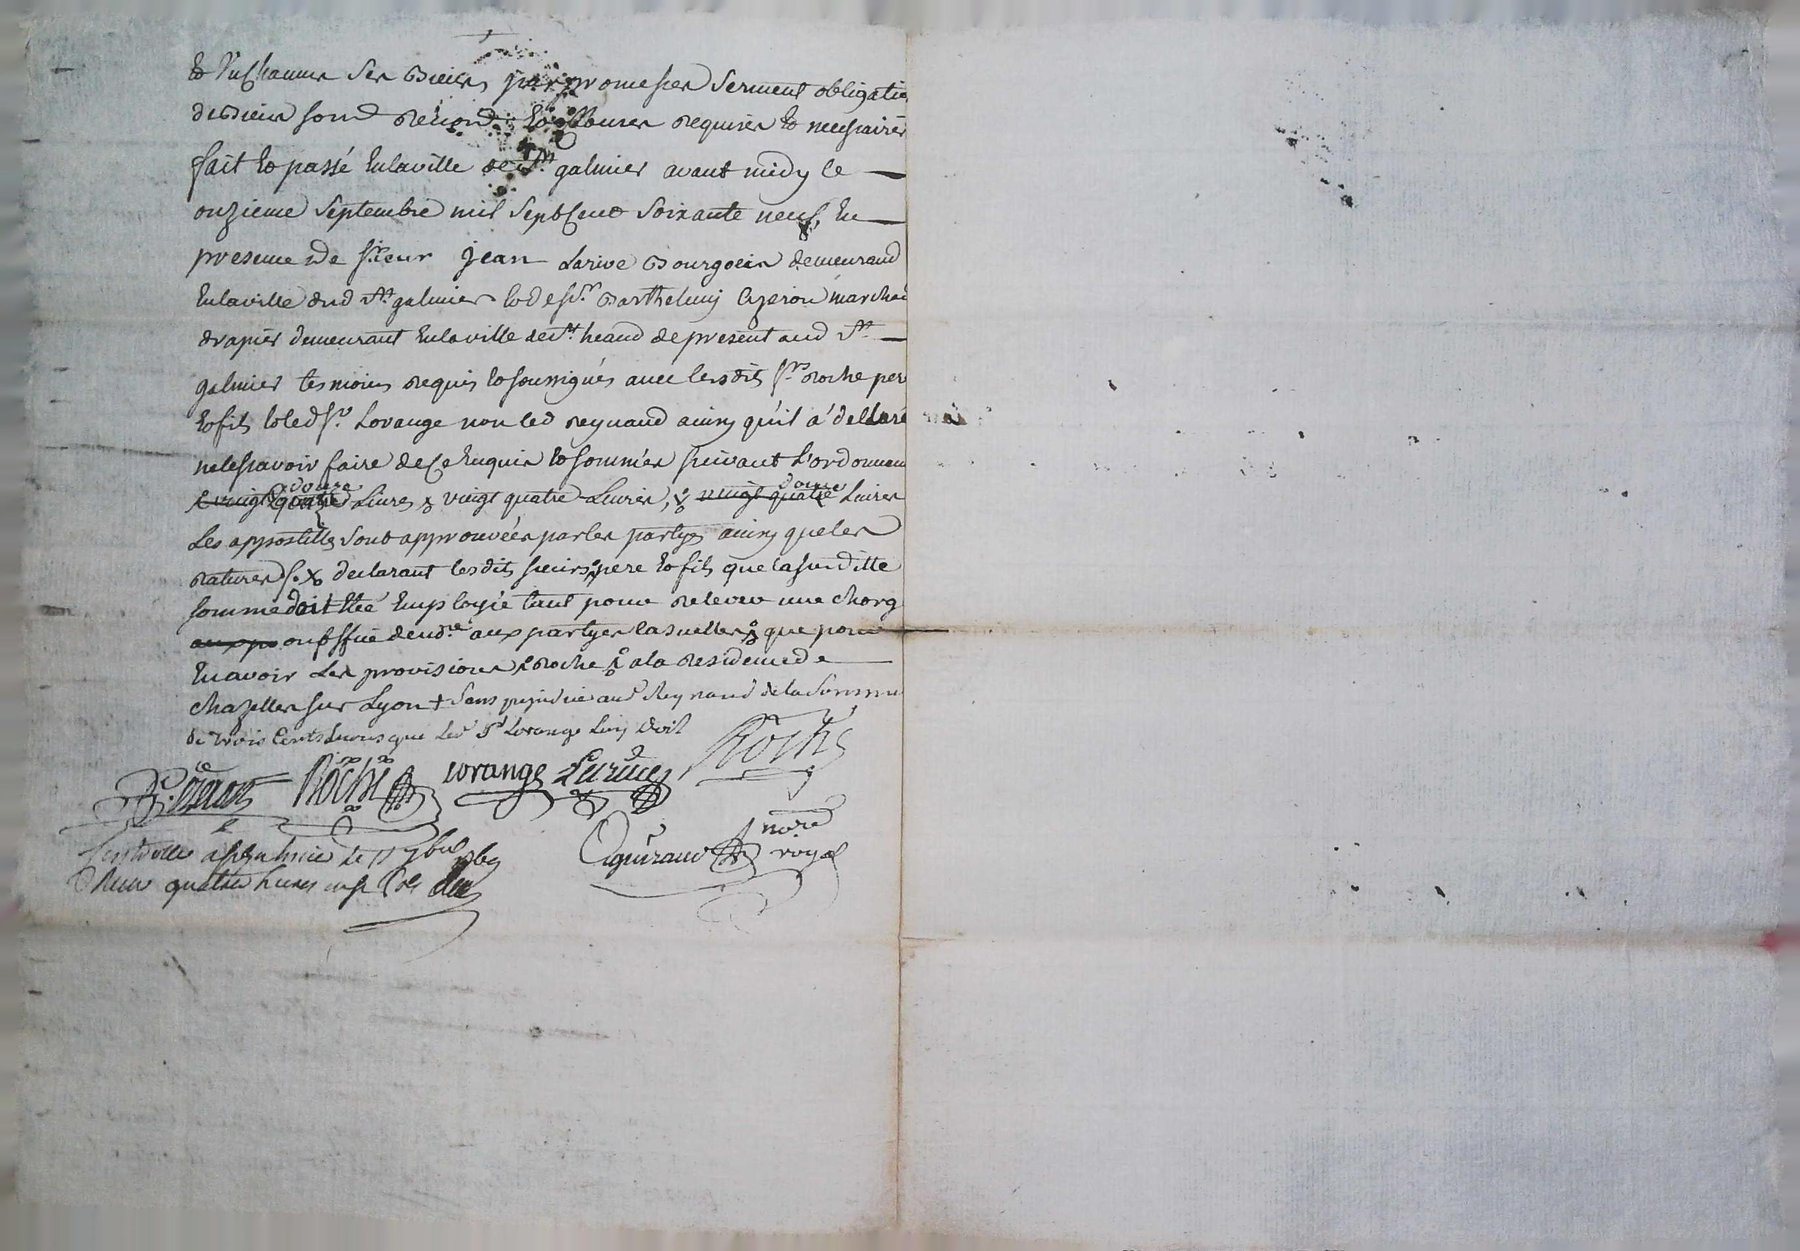 par promesses serment obligation
de biens renon et clauses requises et necessaires
fait et passé en la ville de St. galmier avant midy le
onzieme septembre mil sept cent soixante neuf, en
presence de sieur jean Larive Bourgois demeurand
en la ville dud St galmier et de sr. Barthelemy marchand
drapier demeurant en la ville de St. heand de present aud St
galmier tesmoins requis et soussignés avec lesdits srs. Roche per
et fils et led sr. Lorange non led Reynaud ainsy qu'il a declaré
ne le scavoir faire de ce enquis et sommés suivant l'ordonnan
douze Livres vingt quatre Livres, douze Livres
Les appostilles sont approuvées par les partyes ainsy que les
ratures declarant lesdits sieurs pere et fils que la susditte
somme doit employée tant pour relever une charg
aux partyes casuelles que pour
en avoir Les provisions Roche a la residence de
chazelles sur Lyon + sans prejudice aud Reynaud de la somme
de trois Cents Livres que Led Sr Lorange Luy doit
Roche
Roche Lorange Larive
nore
royal
quatre livres